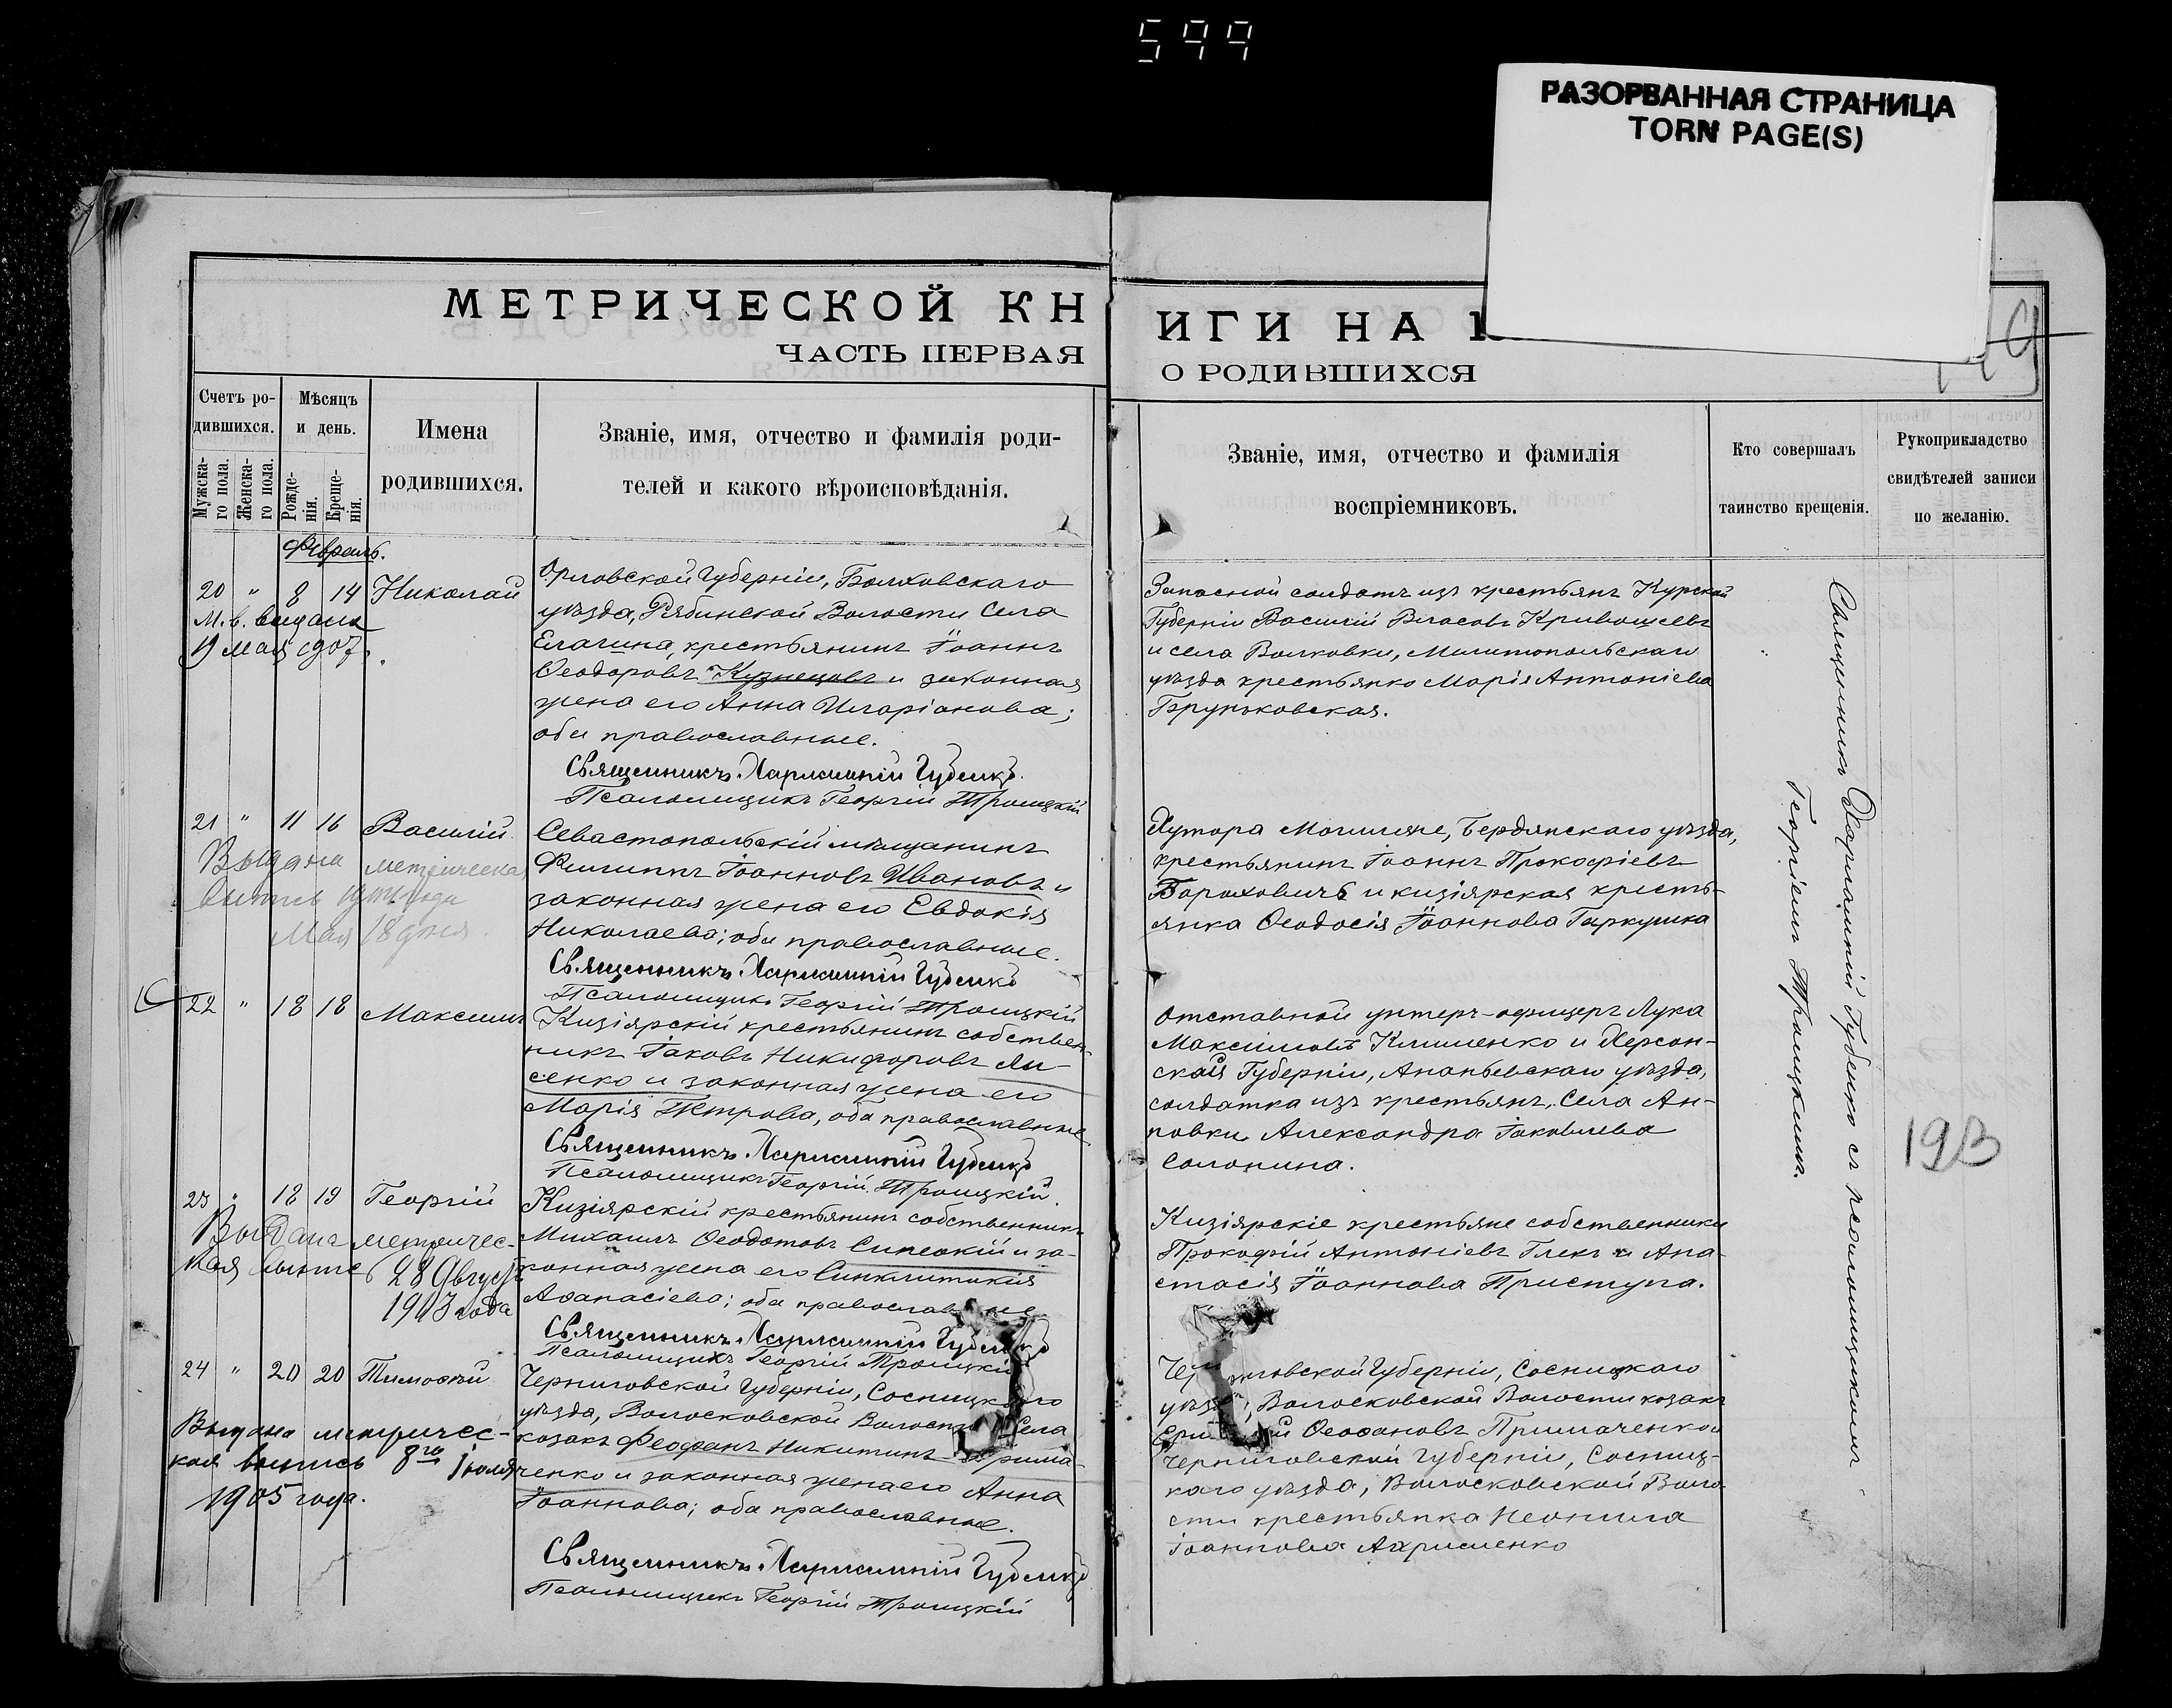 599
РАЗОРВАННАЯ СТРАНИЦА
TORN PAGE(S)
МЕТРИЧЕСКОЙ КН
ЧАСТЬ ПЕРВАЯ
ИГИ НА 1
О РОДИВШИХСЯ
Счетъ ро-
дившихся.
Мужска-
го пола.
Женска-
го пола.
Мѣсяцъ
и день.
Рожде-
нія.
Креще-
нія.
Имена
родившихся.
Званіе, имя, отчество и фамилія роди-
телей и какого вѣроисповѣданія.
Званіе, имя, отчество и фамилія
воспріемниковъ.
Кто совершалъ
таинство крещенія.
Рукоприкладство
свидѣтелей записи
по желанію.
Февраль.
20 " 8 14 Николай
М. в. выдана
19 мая 1907 г.
Орловской Губерніи, Болховскаго
уѣзда, Рябинской Волости Села
Елагина, крестьянинъ Іоаннъ
Ѳеодоровъ Кузнецовъ и законная
жена его Анна Иларіонова;
оба православные.
Священникъ Харлампій Губенко.
Псаломщикъ Георгій Троицкій
Запасной солдатъ изъ крестьянъ Курской
Губерніи Василій Власовъ Кривошеевъ
и села Волковки, Мелитопольскаго
уѣзда крестьянка Марія Антоніева
Бруньковская.
21 " 11 16 Василій
Выдана метрическа
выпись
Мая 18 дня.
Севастопольскій мѣщанинъ
Филиппъ Іоанновъ Ивановъ и
законная жена его Евдокія
Николаева; оба православные.
Священникъ Харлампій Губенко
Псаломщикъ Георгій Троицкій
Хутора Могиляне, Бердянскаго уѣзда,
крестьянинъ Іоаннъ Прокофіевъ
Бороховичъ и кизіярская кресть-
янка Ѳеодосія Іоаннова Гаркушка
22 " 18 18 Максимъ
Кизіярскій крестьянинъ собствен-
никъ Іаковъ Никифоровъ Лы-
сенко и законная жена его
Марія Петрова, оба православные.
Священникъ Харлампій Губенко
Псаломщикъ Георгій Троицкій.
Отставной унтеръ-офицеръ Лука
Максимовъ Клименко и Херсон-
ской Губерніи, Ананьевскаго уѣзда,
солдатка изъ крестьянъ, Села Ан-
новки Александра Іаковлева
Солонина.
23 " 18 19 Георгій
Выдана метричес-
кая выпись 28 Августа
1903 года
Кизіярскій крестьянинъ собственникъ
Михаилъ Ѳеодотовъ Синеокій и за-
конная жена его Синклитикія
Аѳанасіева; оба православные.
Священникъ Харлампій Губенко
Псаломщикъ Георгій Троицкій
Кизіярскіе крестьяне собственники
Прокофій Антоніевъ Глекъ и Ана-
стасія Іоаннова Приступа.
24 " 20 20 Тимоѳей
Выдана метричес-
кая выпись 8го Іюля
1905 года.
Черниговской Губерніи, Сосницкаго
уѣзда, Волосковской Волости Села
козакъ Феофанъ Никитинъ Прима-
ченко и законная жена его Анна
Іоаннова; оба православные.
Священникъ Харлампій Губенко
Псаломщикъ Георгій Троицкій
Черниговской Губерніи, Сосницкаго
уѣзда, Волосковской Волости козакъ
Ѳеофановъ Примаченко и
Черниговской Губерніи, Сосниц-
каго уѣзда, Волосковской Воло-
сти крестьянка Неонила
Іоаннова
Священникъ Харлампій Губенко съ псаломщикомъ
Георгіемъ Троицкимъ.
193